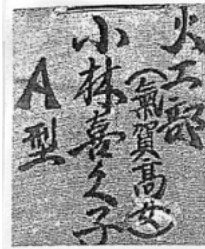 火工部
（氣賀高女）
小林喜久子
A型